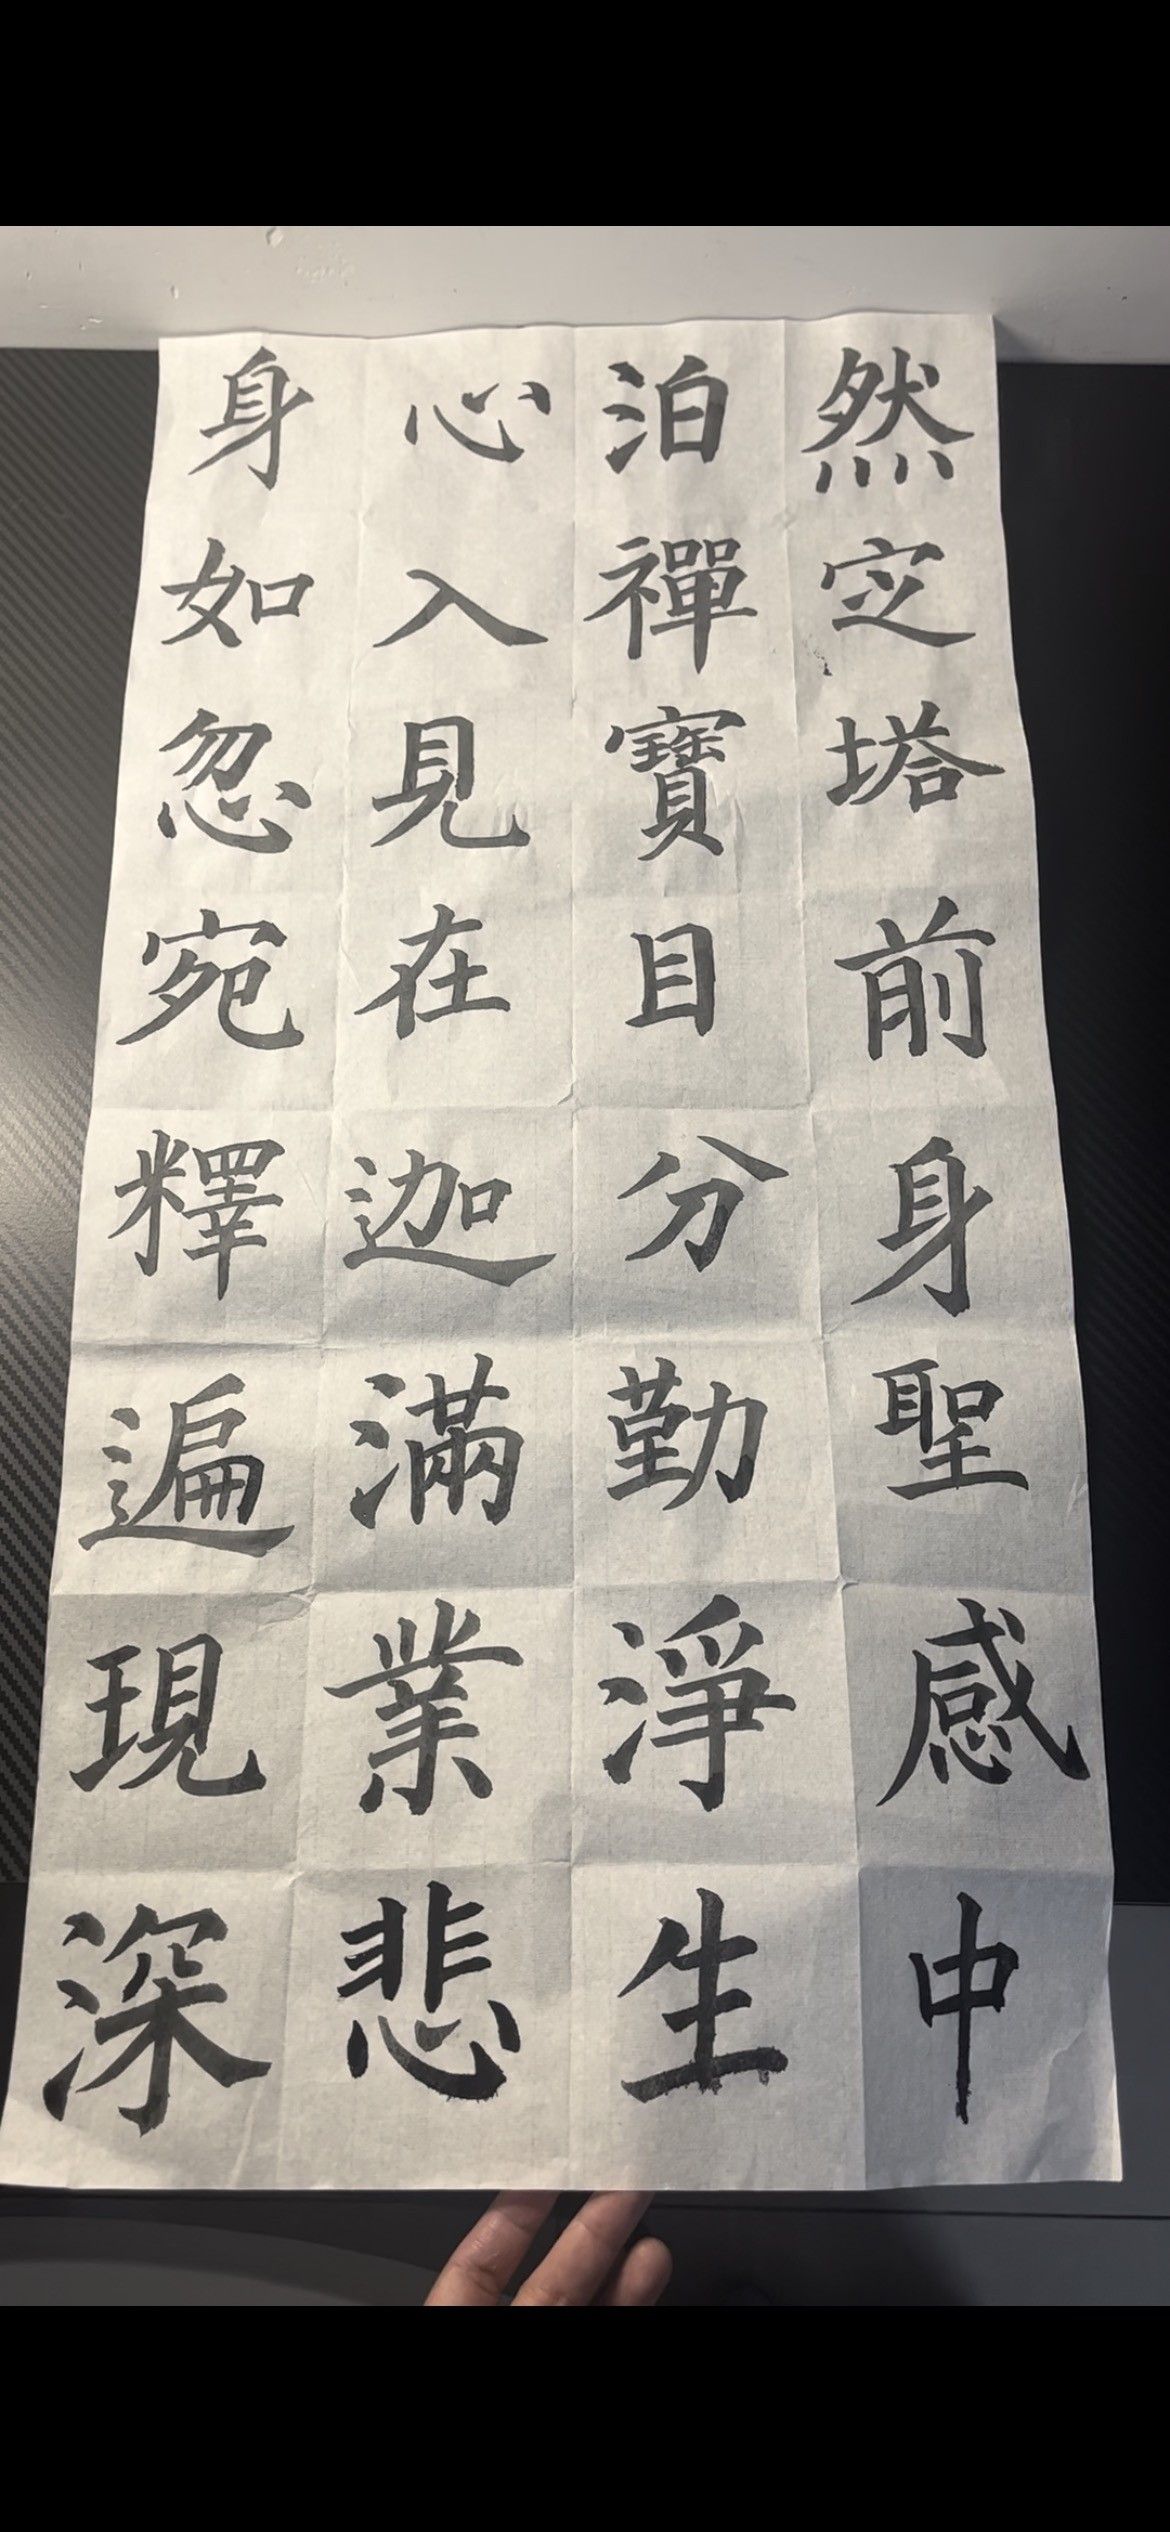 身心泊然
如入禪定
忽見寶塔
宛在目前
釋迦分身
遍滿勤聖
現業淨感
深悲生中